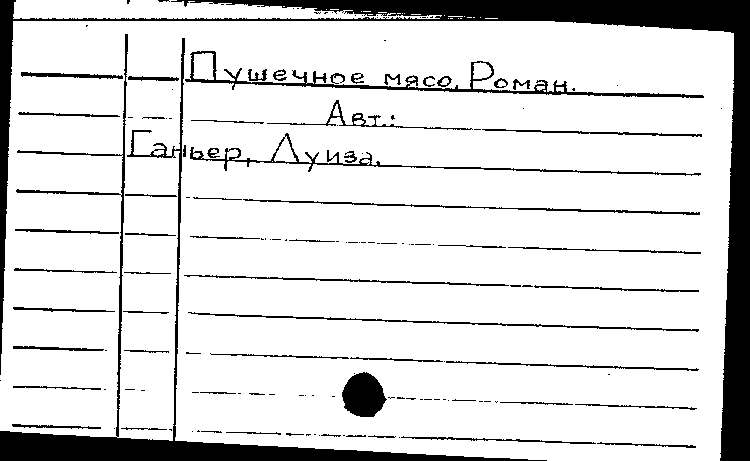 Пушечное мясо. Роман.
Авт.:
Ганьер, Луиза.